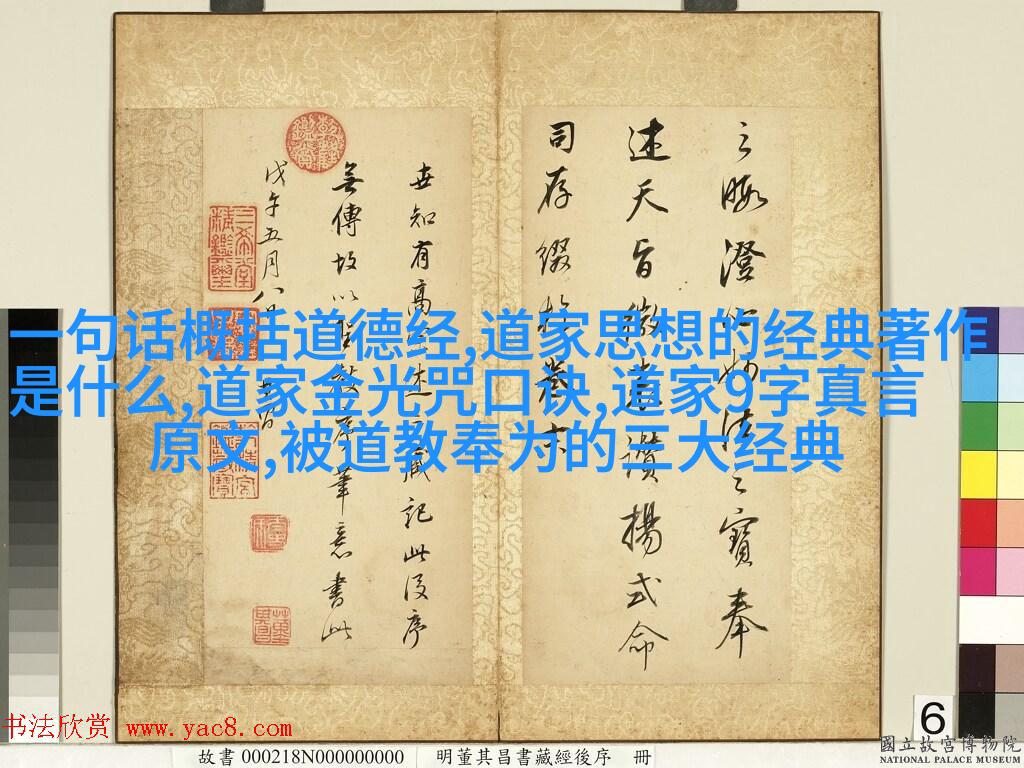 之暇澄心妙法之寶奉
述天旨微臣讚揚式命
司存綴於卷
世知有高 述 藏記此後序
無傳故以聖教序筆意書此
戊午五月八日 其昌
一句话概括道德经,道家思想的经典著作
是什么,道家金光咒口诀,道家9字真言
原文,被道教奉为的三大经典
6
书法欣赏 www.yac8.com
故書 000218N000000000
明董其昌書藏經後序 冊
國立故宮博物院
NATIONAL PALACE MUSEUM